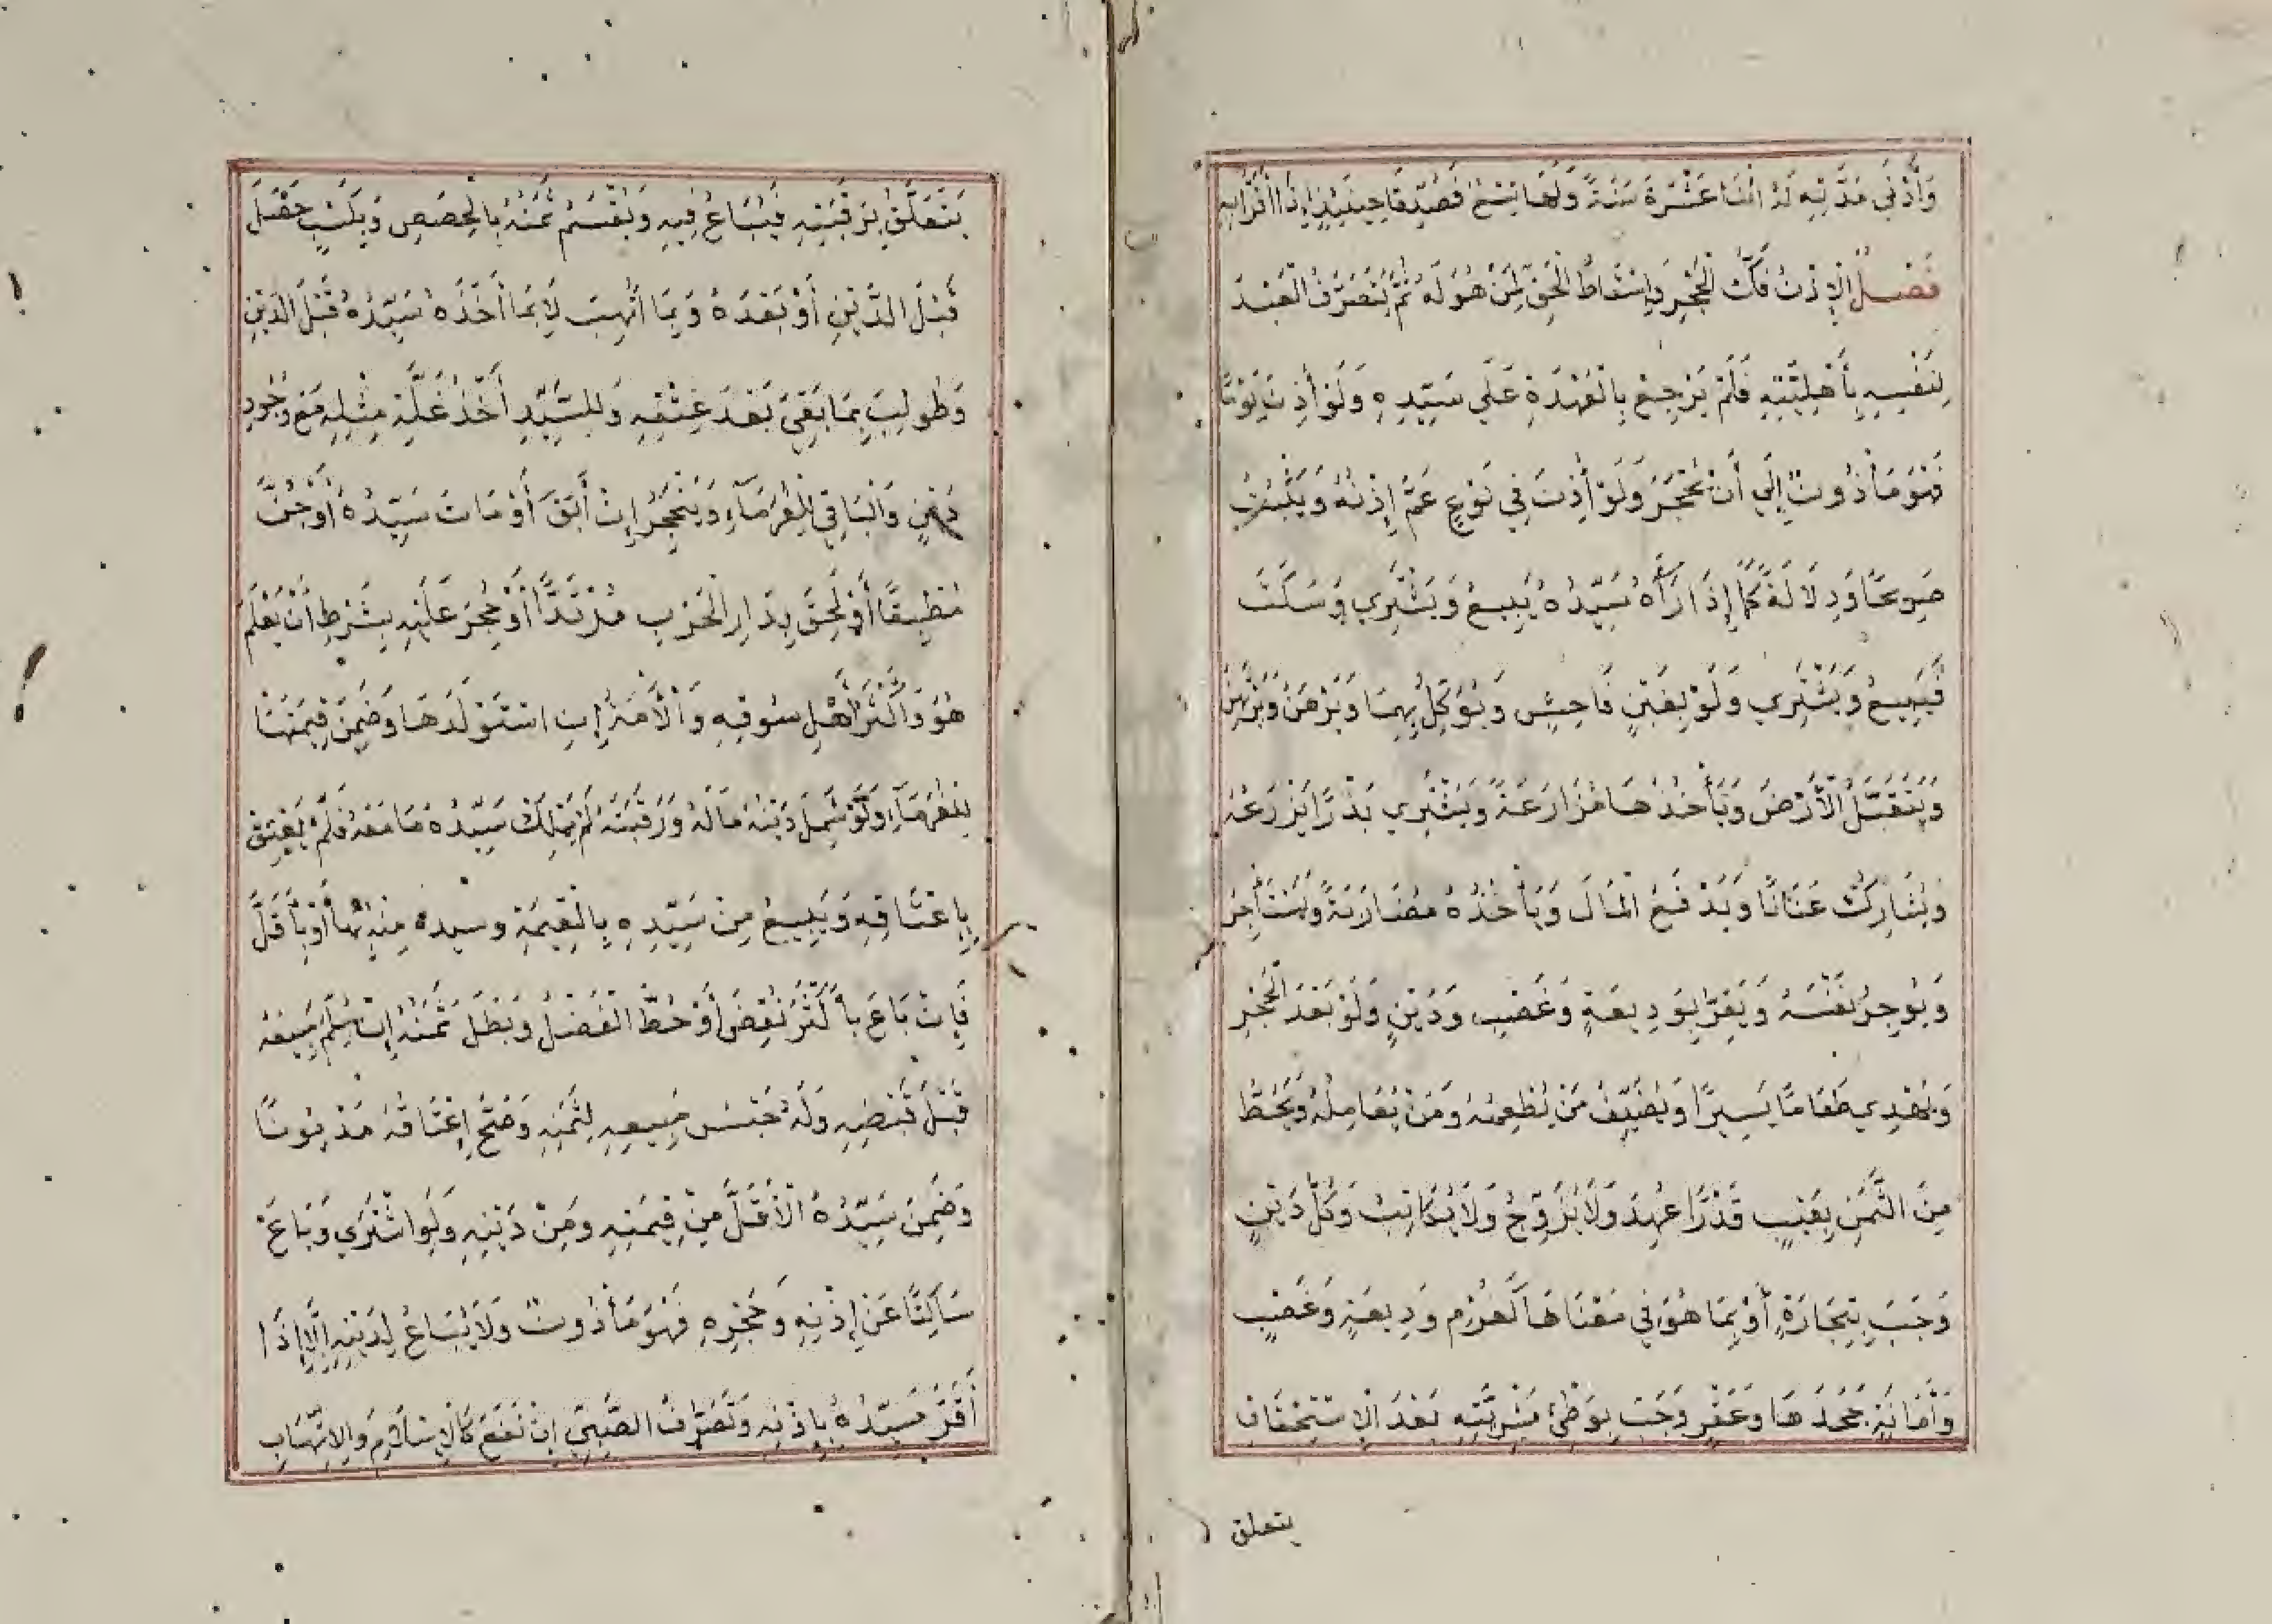 وَأَدْنَى مُدَّتِهِ لَهُ اثْنَتَا عَشْرَةَ سَنَةً وَلَهَا تِسْعٌ فَصُدِّقَا حِينَئِذٍ إِذَا أَقَرَّا بِهِ
فَصْلٌ الْإِذْنُ فَكُّ الْحَجْرِ وَإِسْقَاطُ الْحَقِّ لِمَنْ هُوَ لَهُ ثُمَّ يَتَصَرَّفُ الْعَبْدُ
لِنَفْسِهِ بِأَهْلِيَّتِهِ فَلَمْ يَرْجِعْ بِالْعُهْدَةِ عَلَى سَيِّدِهِ وَلَوْ أَذِنَ يَوْمًا
فَهُوَ مَأْذُونٌ إِلَى أَنْ يُحْجَرَ وَلَوْ أَذِنَ فِي نَوْعٍ عَمَّ إِذْنُهُ وَيَثْبُتُ
صَرِيحًا وَدِلَالَةً كَمَا إِذَا رَآهُ سَيِّدُهُ يَبِيعُ وَيَشْتَرِي وَسَكَتَ
فَيَبِيعُ وَيَشْتَرِي وَلَوْ بِغَبْنٍ فَاحِشٍ وَيُوَكِّلُ بِهِمَا وَيَرْهَنُ وَيَرْتَهِنُ
وَيَتَقَبَّلُ الْأَرْضَ وَيَأْخُذُهَا مُزَارَعَةً وَيَشْتَرِي بَذْرًا يَزْرَعُهُ
وَيُشَارِكُ عِنَانًا وَيَدْفَعُ الْمَالَ وَيَأْخُذُهُ مُضَارَبَةً وَيَسْتَأْجِرُ
وَيُوجِرُ نَفْسَهُ وَيُقِرُّ بِوَدِيعَةٍ وَغَصْبٍ وَدَيْنٍ وَلَوْ بَعْدَ الْحَجْرِ
وَيُهْدِي طَعَامًا يَسِيرًا وَيُضَيِّفُ مَنْ يُطْعِمُهُ وَمَنْ يُعَامِلُهُ وَيَحُطُّ
مِنَ الثَّمَنِ بِعَيْبٍ قَدْرًا عُهِدَ وَلَا يُزَوِّجُ وَلَا يُكَاتِبُ وَكُلُّ دَيْنٍ
وَجَبَ بِتِجَارَةٍ أَوْ بِمَا هُوَ فِي مَعْنَاهَا كَغُرْمِ وَدِيعَةٍ وَغَصْبٍ
وَأَمَانَةٍ جَحَدَهَا وَعُقْرٍ وَجَبَ بِوَطْئِ مَشْرِيَّتِهِ بَعْدَ الْاِسْتِحْقَاقِ
يتعلق
يَتَعَلَّقُ بِرَقَبَتِهِ فَيُبَاعُ فِيهِ وَيُقْسَمُ ثَمَنُهُ بِالْحِصَصِ وَبِكَسْبٍ حَصَلَ
قَبْلَ الدَّيْنِ أَوْ بَعْدَهُ وَبِمَا اتُّهِبَ لَا بِمَا أَخَذَهُ سَيِّدُهُ قَبْلَ الدَّيْنِ
وَطُولِبَ بِمَا بَقِيَ بَعْدَ عِتْقِهِ وَلِلسَّيِّدِ أَخْذُ غَلَّةِ مِثْلِهِ مَعَ وُجُودِ
دَيْنٍ وَالْبَاقِي لِلْغُرَمَاءِ وَيَنْحَجِرُ إِنْ أَبَقَ أَوْ مَاتَ سَيِّدُهُ أَوْ جُنَّ
مُطْبِقًا أَوْ لَحِقَ بِدَارِ الْحَرْبِ مُرْتَدًّا أَوْ حُجِرَ عَلَيْهِ بِشَرْطِ أَنْ يَعْلَمَ
هُوَ وَأَكْثَرُ أَهْلِ سُوقِهِ وَالْأَمَةُ إِنِ اسْتَوْلَدَهَا وَضَمِنَ قِيمَتَهَا
لِلْغُرَمَاءِ وَلَوْ شَمِلَ دَيْنُهُ مَالَهُ وَرَقَبَتَهُ لَمْ يَمْلِكْ سَيِّدُهُ مَا مَعَهُ فَلَمْ يَعْتِقْ
بِإِعْتَاقِهِ وَيَبِيعُ مِنْ سَيِّدِهِ بِالْقِيمَةِ وسيده مِنْهُ بِهَا أَوْ بِأَقَلَّ
فَإِنْ بَاعَ بِأَكْثَرَ نُقِضَ أَوْ حُطَّ الْفَضْلُ وَبَطَلَ ثَمَنُهُ إِنْ سَلَّمَ مَبِيعَهُ
قَبْلَ قَبْضِهِ وَلَهُ حَبْسُ مَبِيعِهِ لِثَمَنِهِ وَصَحَّ إِعْتَاقُهُ مَدْيُونًا
وَضَمِنَ سَيِّدُهُ الْأَقَلَّ مِنْ قِيمَتِهِ وَمِنْ دَيْنِهِ وَلَوِ اشْتَرَى وَبَاعَ
سَاكِتًا عَنْ إِذْنِهِ وَحَجْرِهِ فَهُوَ مَأْذُونٌ وَلَا يُبَاعُ لِدَيْنِهِ إِلَّا إِذَا
أَقَرَّ سَيِّدُهُ بِإِذْنِهِ وَتَصَرُّفُ الصَّبِيِّ إِنْ نَفَعَ كَالْإِسْلَامِ وَالْاِتِّهَابِ